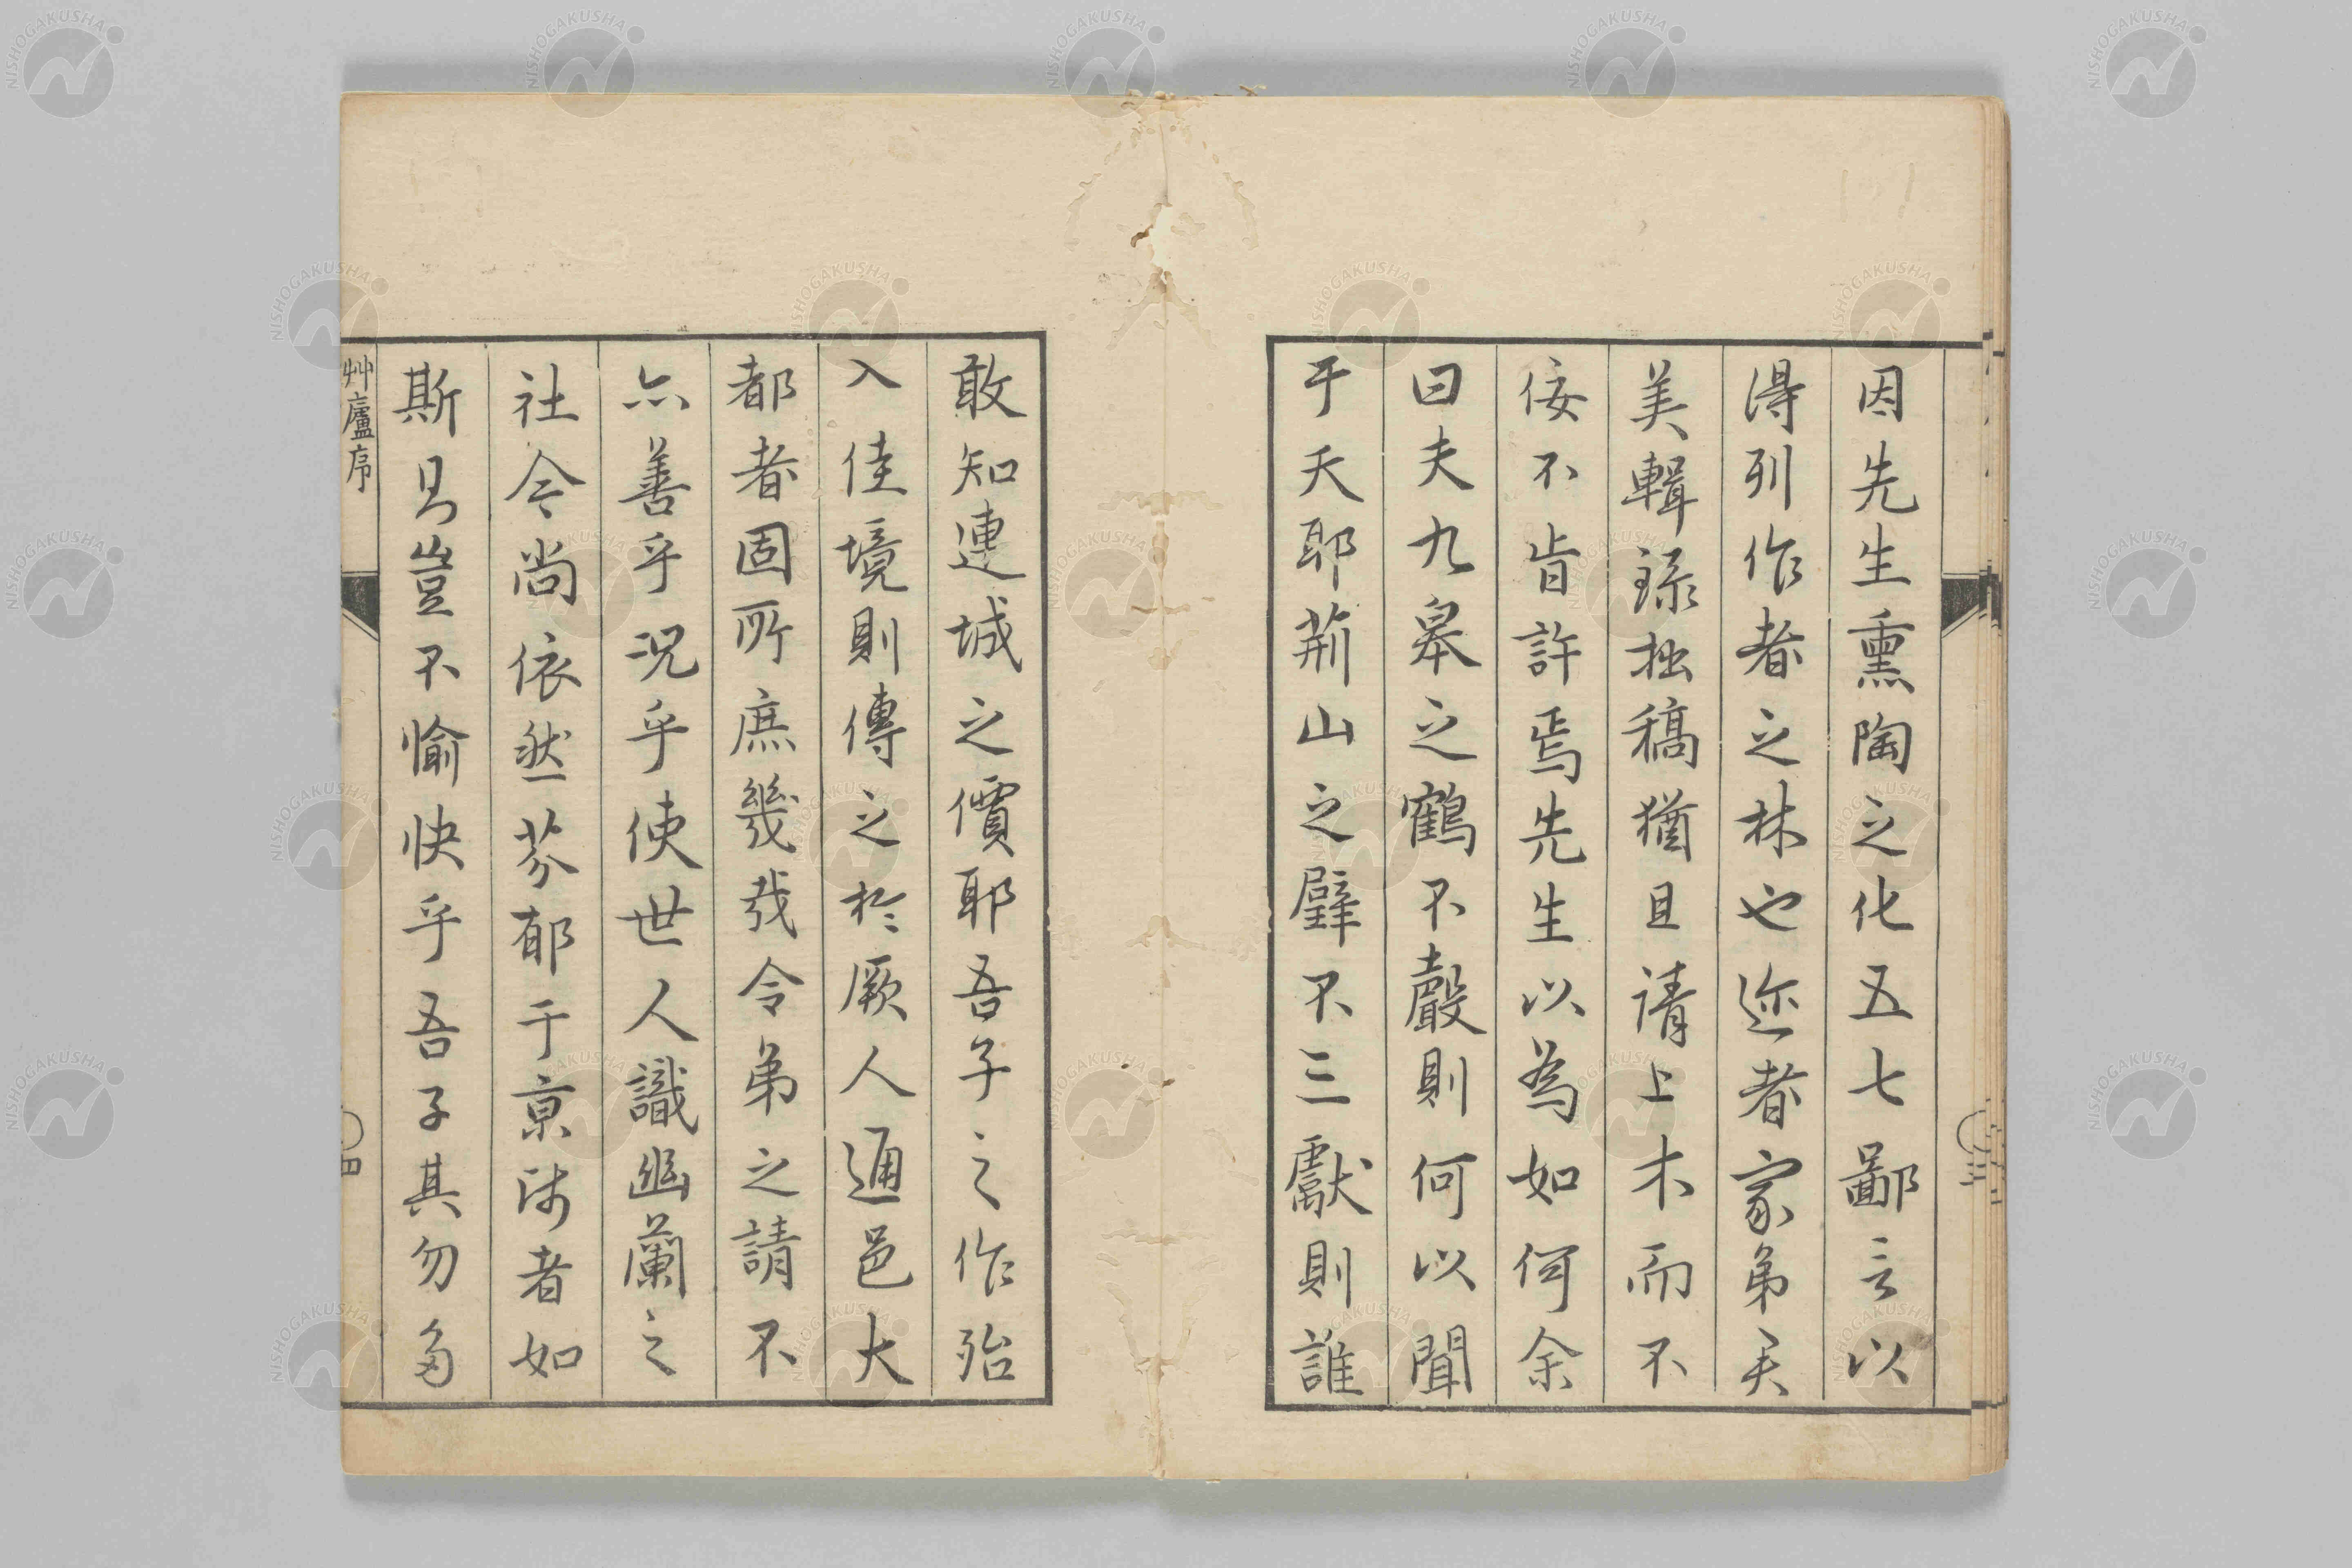 因先生熏陶之化五七鄙言以
得列作者之林也迩者家弟天
美輯録拙稿猶且請上木而不
佞不肯許焉先生以為如何余
曰夫九皋之鶴不聲則何以聞
于天耶荊山之璧不三獻則誰
敢知連城之價耶吾子之作殆
入佳境則傳之於厥人通邑大
都者固所庶幾哉令弟之請不
亦善乎況乎使世人識幽蘭之
社今尚依然芬郁于京師者如
斯豈不愉快乎吾子其勿多
艸廬序
四
三
NISHOGAKUSHA